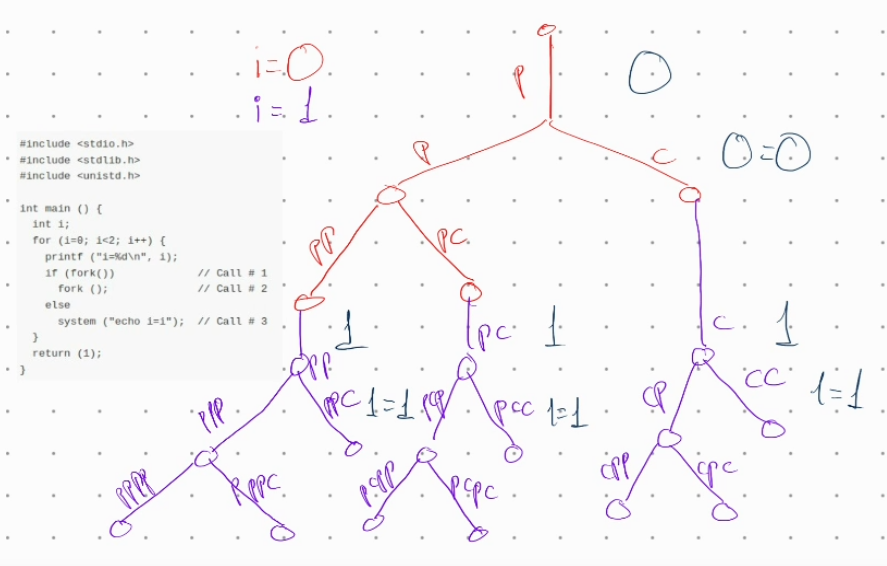 i=0
i=1
P
0
P
C
0=0
#include <stdio.h>
#include <stdlib.h>
#include <unistd.h>
int main () {
int i;
for (i=0; i<2; i++) {
printf ("i=%d\n", i);
if (fork()) // Call # 1
fork (); // Call # 2
else
system ("echo i=i"); // Call # 3
}
return (1);
}
PP
PC
1
PC
1
C
1
PP
PPC
1=1
PCP
PCC
1=1
CP
CC
1=1
PPP
PPPP
PPPC
PCPP
PCPC
CPP
CPC